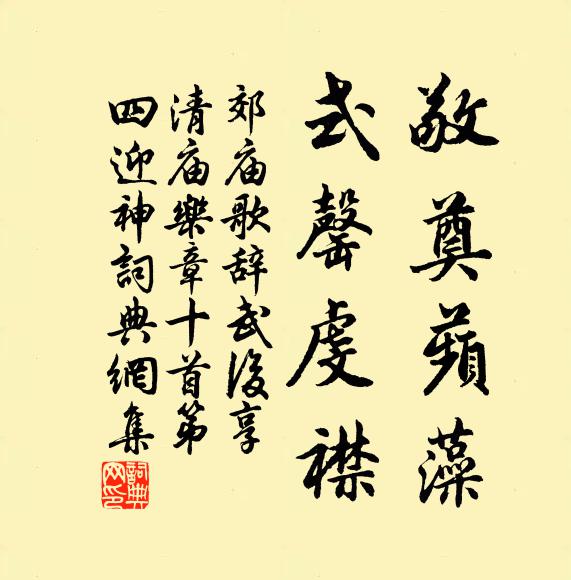 敬奠蘋藻
式罄虔襟
郊庙歌辞武後享
清庙樂章十首第
四迎神詞典網集
詞典网印